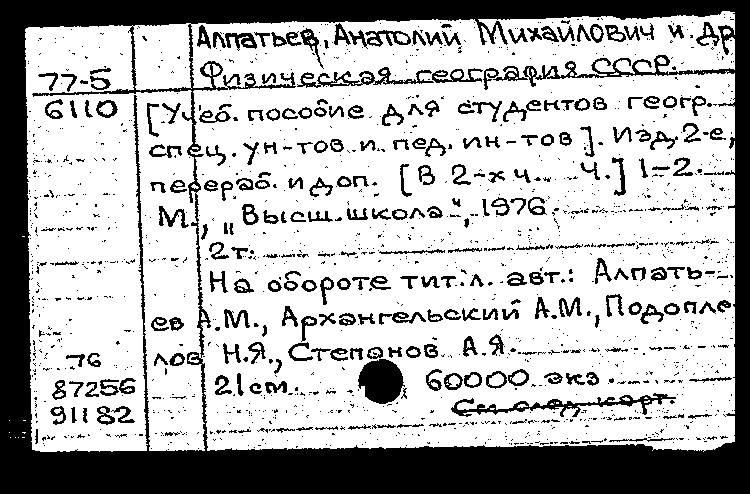 Алпатьев, Анатолий Михайлович и др
77-5 Физическая география СССР.
6110 [Учеб. пособие для студентов геогр.
спец. ун-тов и пед. ин-тов]. Изд. 2-е,
перераб. и доп. [В 2-х ч. Ч.] 1-2.
М., „Высш. школа“, 1976.
2 т.
На обороте тит. л. авт.: Алпать-
ев А.М., Архангельский А.М., Подопле-
76 лов Н.Я., Степанов А.Я.
87256 21 cm. 60000 экз.
91182 См. след. карт.